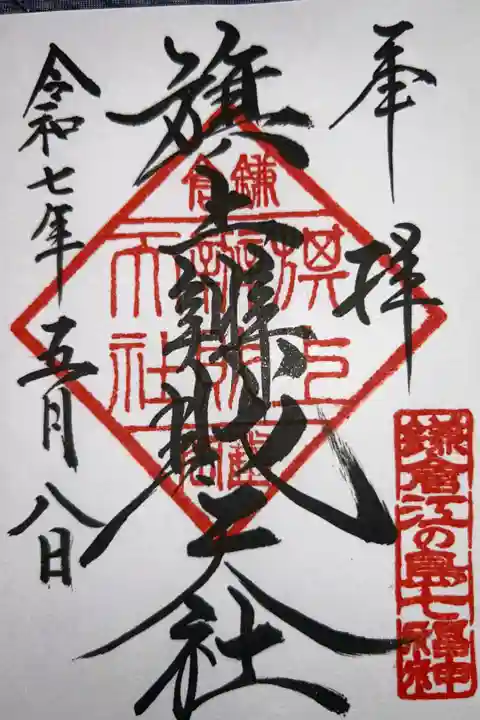 奉拝
旗上辨財天社
令和七年五月八日
鎌倉
旗上
天社
鎌倉江の島七福神